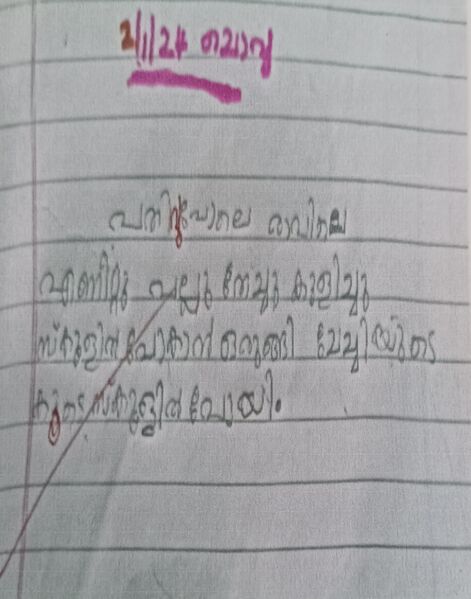 2/1/24 ചൊവ്വ
പതിവുപോലെ രാവിലെ
എണീറ്റു പല്ലു തേച്ചു കുളിച്ചു
സ്കൂളിൽ പോകാൻ ഒരുങ്ങി ചേച്ചിയുടെ
കൂടെ സ്കൂളിൽ പോയി.